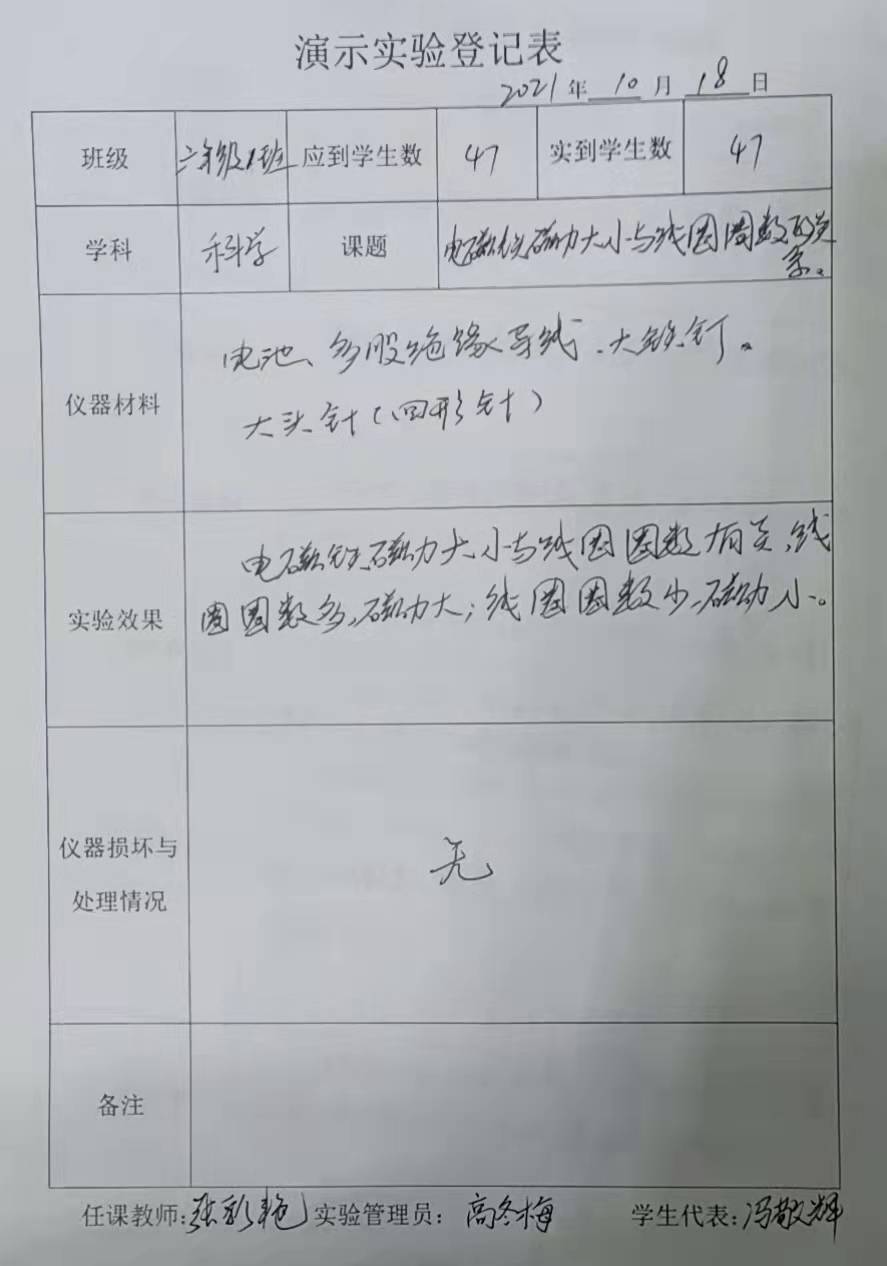 演示实验登记表
2021年 10 月 18 日
班级 六年级1班 应到学生数 47 实到学生数 47
学科 科学 课题 电磁铁磁力大小与线圈圈数的关
系。
仪器材料
电池、多股绝缘导线、大铁钉。
大头针(回形针)
实验效果
电磁铁磁力大小与线圈圈数有关,线
圈圈数多,磁力大;线圈圈数少,磁力小。
仪器损坏与
处理情况
无
备注
任课教师:张彩艳 实验管理员:高冬梅 学生代表:冯敬辉